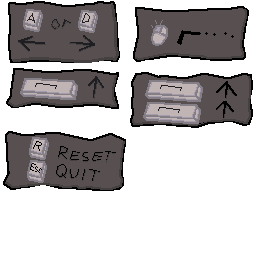 A or D
R RESET
Esc QUIT